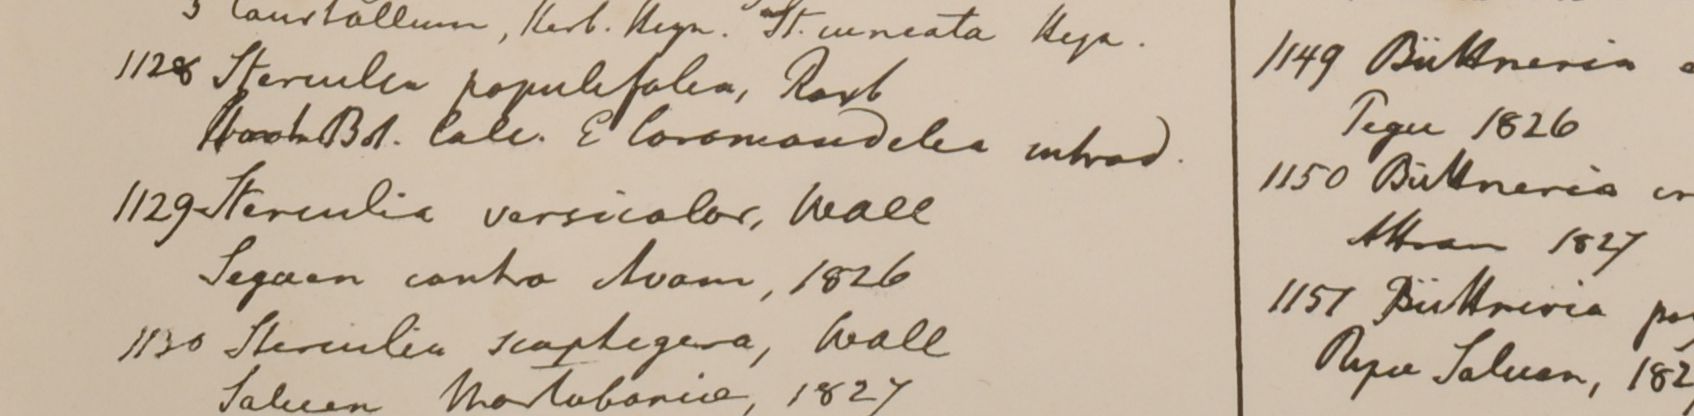 5 Caustallum, Herb. Heyn. St. cuneata Heyn.
1128 Sterculia populifolia, Roxb
Hort Bot. Calc. E Coromandelia introd.
1129 Sterculia versicolor, Wall
Segaen contra Avam, 1826
1130 Sterculia scaphigera, Wall
Saluen Martabaniae, 1827
1149 Büttneria
Pegu 1826
1150 Büttneria
Attran 1827
1151 Büttneria
Ripae Saluen, 182